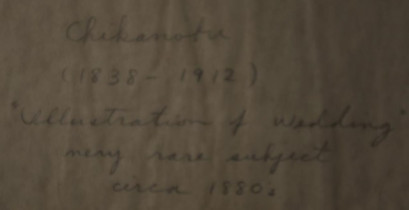 Chikanobu
(1838 - 1912)
"Illustration of wedding"
very rare subject
circa 1880s